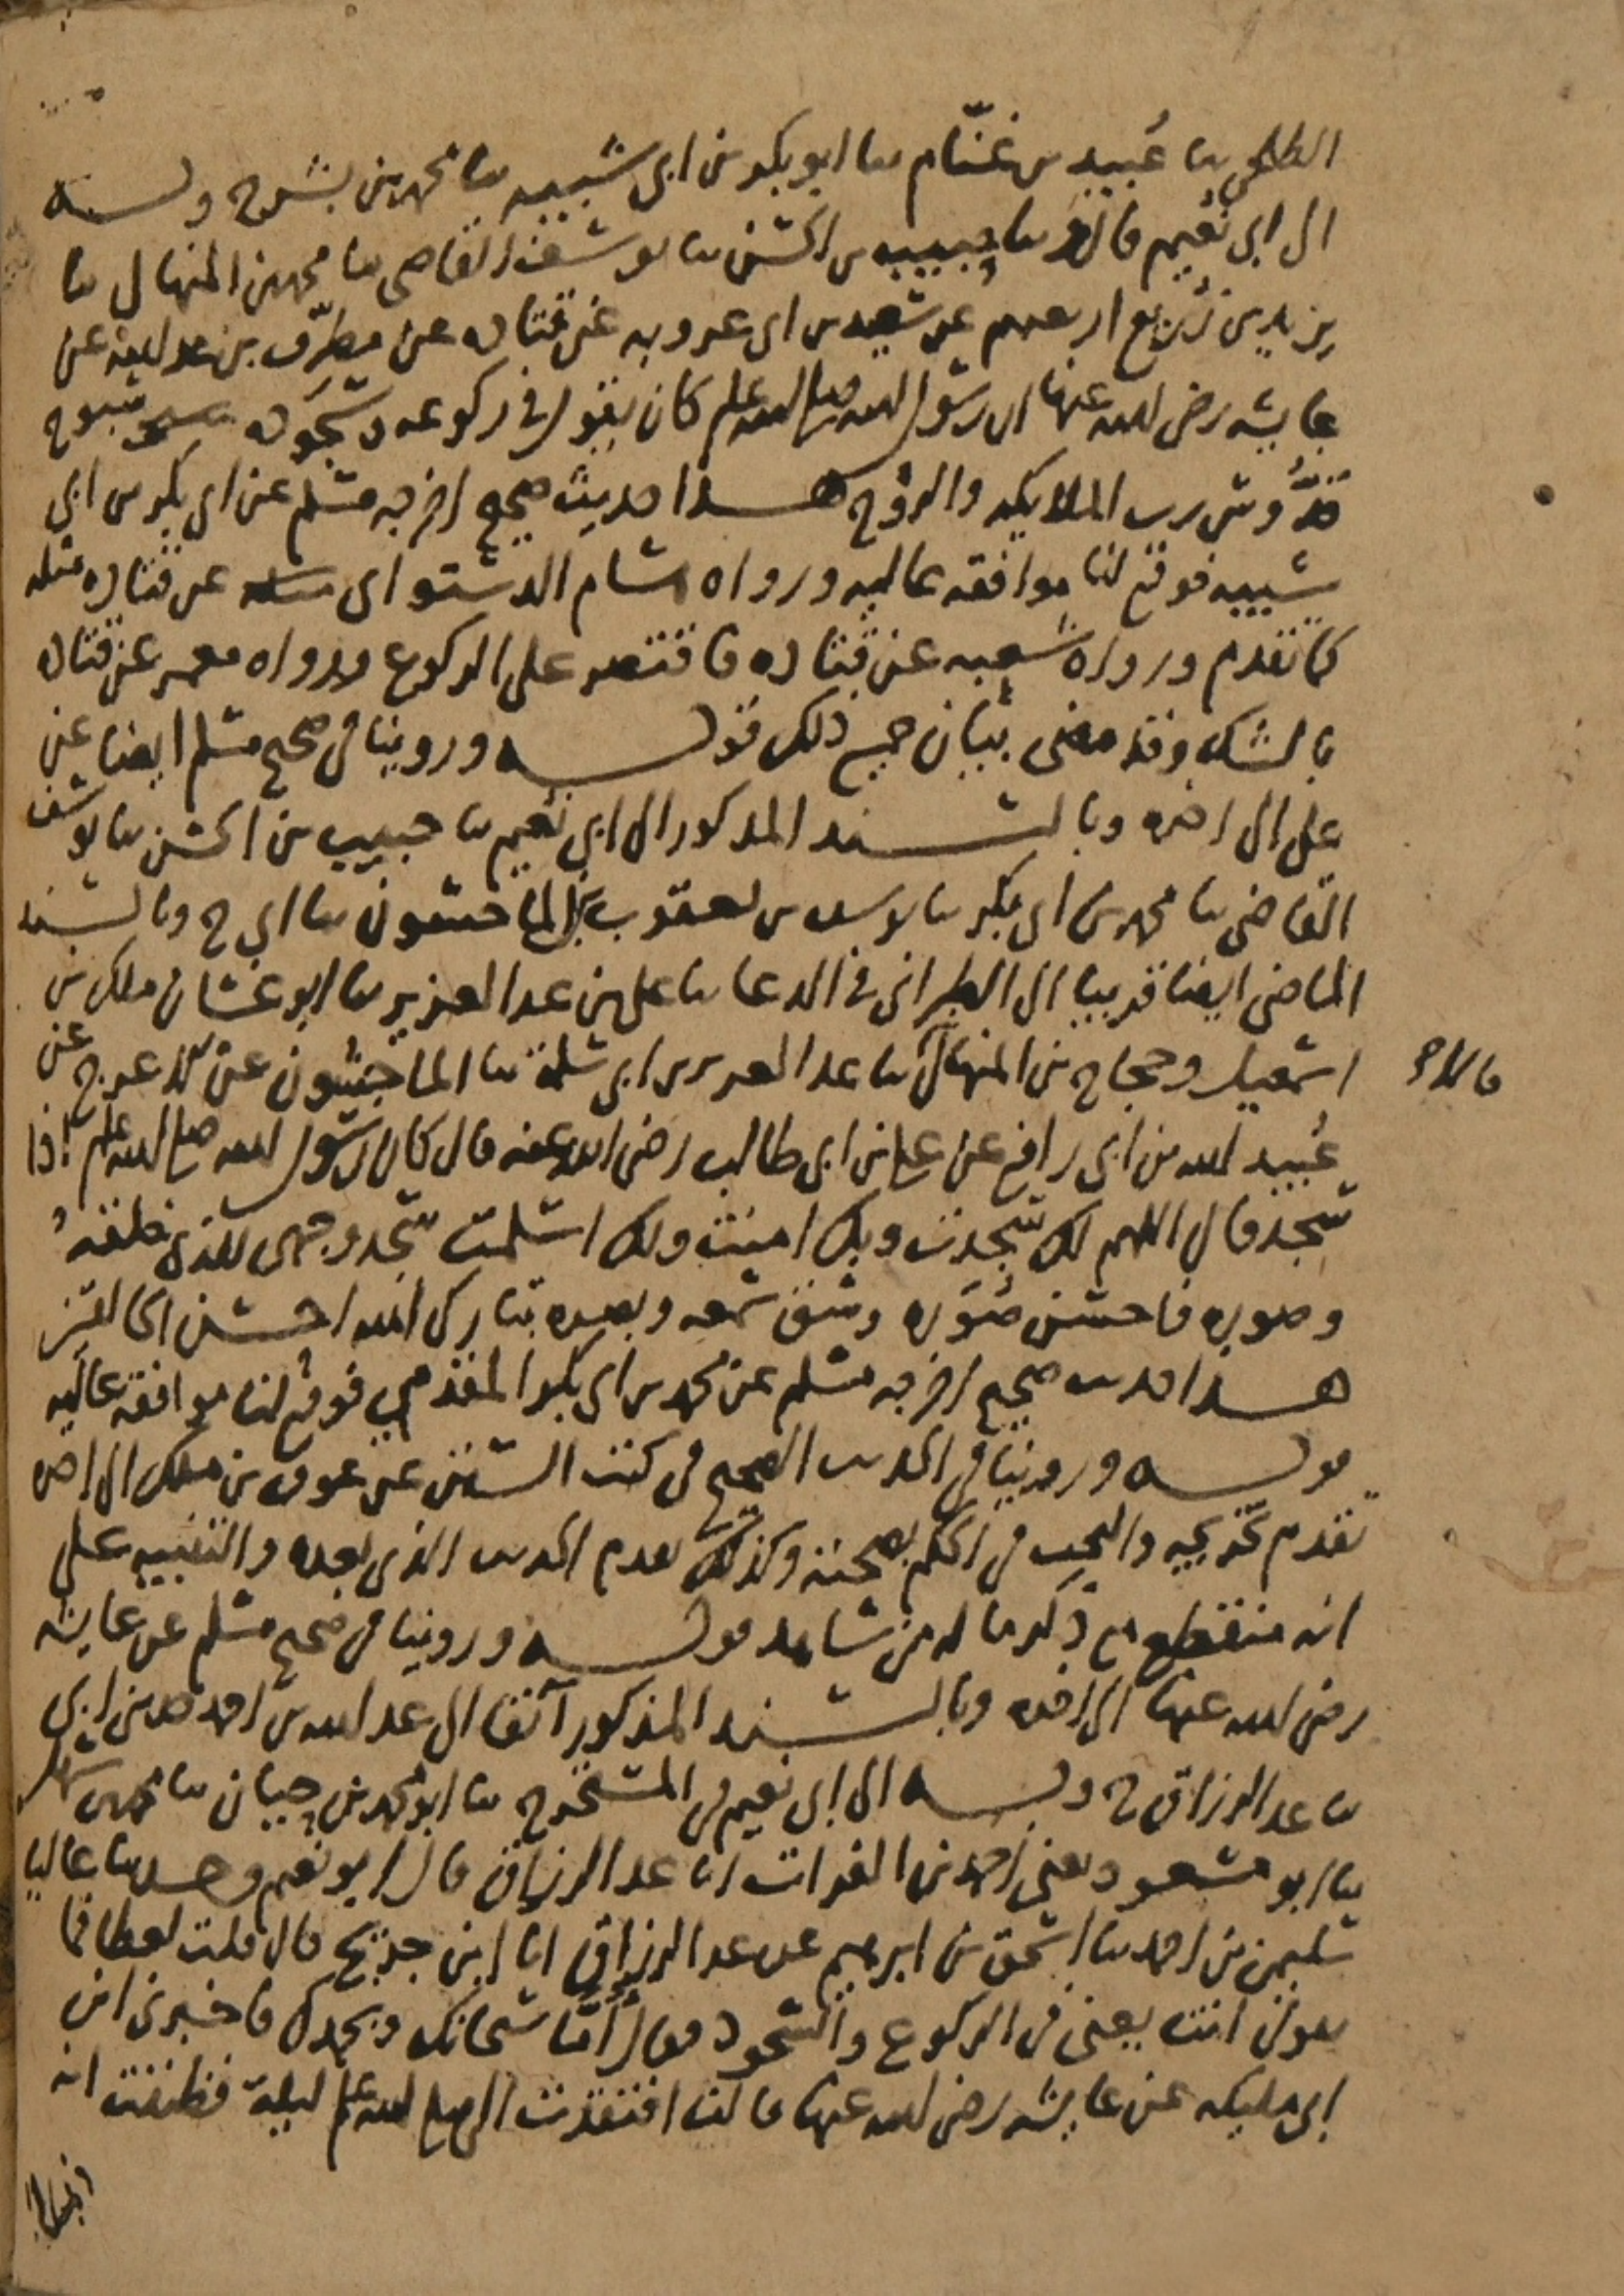 الطلحي ثنا عُبيد بن غنّام ثنا ابو بكر بن ابي شيبه ثنا محمد بن بشر ح وبه
الى ابي نُعيم قال ثنا حبيب بن الحسن ثنا يوسف القاضي ثنا محمد بن المنهال ثنا
يزيد بن زُريع اربعتهم عن سعيد بن ابي عروبه عن قتاده عن مطرّف بن عبد الله عن
عايشه رضي الله عنها ان رسول الله صلى الله عليه وسلم كان يقول في ركوعه وسجوده سبوح
قدُّوس رب الملايكه والروح هذا حديث صحيح اخرجه مسلم عن ابي بكر بن ابي
شيبه فوقع لنا موافقه عاليه ورواه هشام الدستواي عن قتاده مثله
كما تقدم ورواه شعبه عن قتاده فاقتصر على الركوع ورواه معمر عن قتاده
بالشك وقد مضى بيان جميع ذلك قوله وروينا في صحيح مسلم ايضا عن
علي الى اخره وبالسند المذكور الى ابي نُعيم ثنا حبيب بن الحسن ثنا يوسف
القاضي ثنا محمد بن ابي بكر ثنا يوسف بن يعقوب بن الماجشون ثنا ابي ح وبالسند
الماضي ايضا قريبا الى الطبراني في الدعا ثنا علي بن عبد العزيز ثنا ابو غسان ملك بن
اسمعيل وحجاج بن المنهال قالا ثنا عبد العزيز بن ابي سلمة ثنا الماجشون عن الاعرج عن
عُبيد الله بن ابي رافع عن علي بن ابي طالب رضي الله عنه قال كان رسول الله صلى الله عليه وسلم اذا
سجد قال اللهم لك سجدت وبك امنت ولك اسلمت سجد وجهي للذي خلقه
وصوره فاحسن صُوَره وشق سمعه وبصره تبارك الله احسن الخالقين
هذا حديث صحيح اخرجه مسلم عن محمد بن ابي بكر المقدمي فوقع لنا موافقه عاليه
قوله وروينا في الحديث الصحيح في كتب السنن عن عوف بن ملك الى اخره
تقدم تخريجه والبحث في الحكم بصحته وكذلك تقدم الحديث الذي بعده والتنبيه على
انه منقطع مع ذكر ما له من شاهد قوله وروينا في صحيح مسلم عن عايشه
رضي الله عنها الى اخره وبالسند المذكور آنفا الى عبد الله بن احمد حدثني ابي
ثنا عبد الرزاق ح وبه الى ابي نعيم في المستخرج ثنا ابو محمد بن حيان ثنا محمد بن سهل
ثنا ابو مسعود يعني احمد بن الفرات انا عبد الرزاق قال ابو نعيم وحدثنا عاليا
سليمن بن احمد ثنا اسحق بن ابرهيم عن عبد الرزاق انا ابن جريج قال قلت لعطا فما
تقول انت يعني في الركوع والسجود فقال أمّا سبحانك وبحمدك فاخبرني ابن
ابي مليكه عن عايشه رضي الله عنها قالت افتقدت النبي صلى الله عليه وسلم ليلة فظننت انه